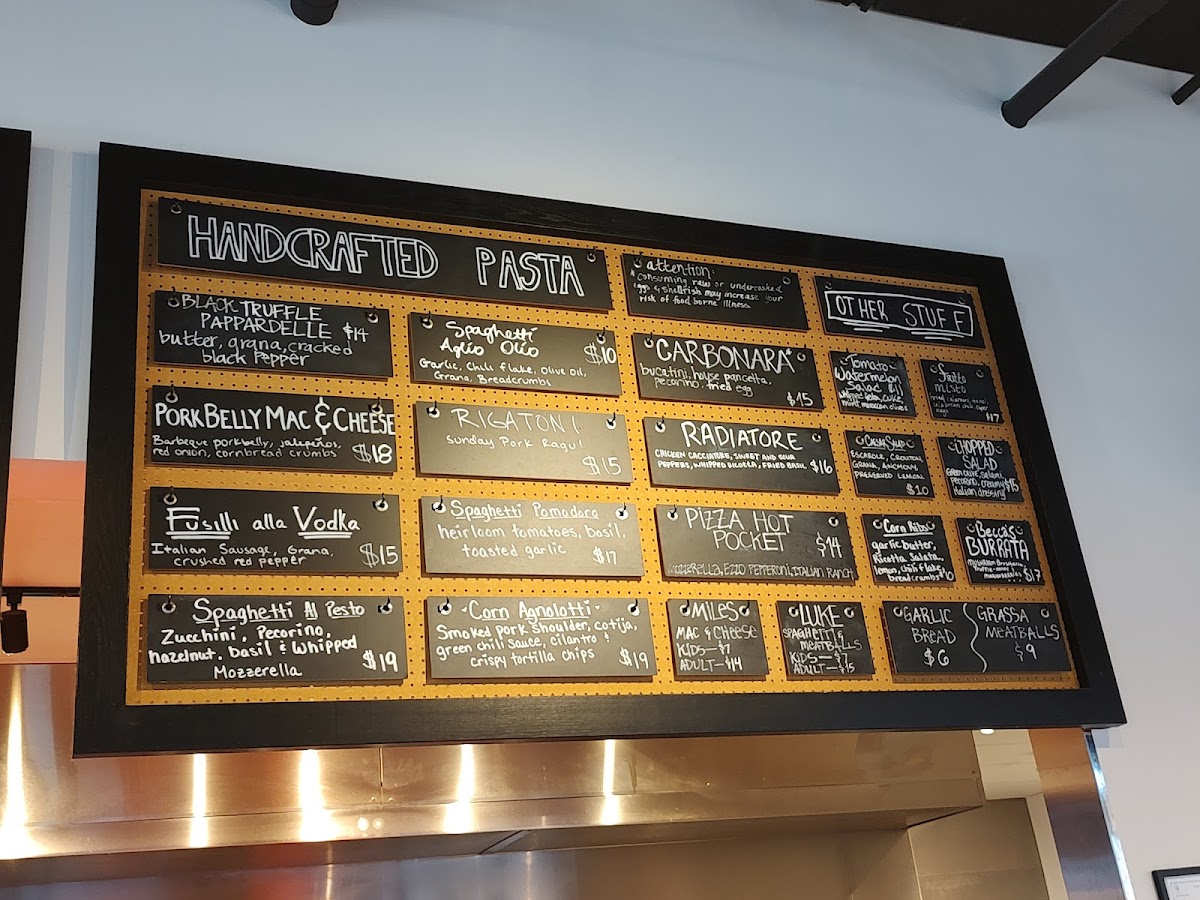 HANDCRAFTED PASTA
* attention:
consuming raw or undercooked
eggs & shellfish may increase your
risk of food borne illness
OTHER STUFF
BLACK TRUFFLE
PAPPARDELLE $14
butter, grana, cracked
black Pepper
Spaghetti
Aglio Olio $10
Garlic, Chili flake, Olive oil,
Grana, Breadcrumbs
CARBONARA*
bucatini, house pancetta,
pecorino, fried egg
$15
Tomato
Watermelon
Salad $11
Fritto
misto
$17
PORK BELLY MAC & CHEESE
Barbeque pork belly, jalepeños,
red onion, cornbread crumbs $18
RIGATONI
Sunday Pork Ragu!
$15
RADIATORE
CHICKEN CACCIATORE, SWEET AND SOUR
PEPPERS, WHIPPED RICOTTA, FRIED BASIL $16
CAESAR SALAD
ESCAROLE, CROUTON,
GRANA, ANCHOVY,
PRESERVED LEMON
$10
CHOPPED
SALAD
Green olive, Salami,
pecorino, creamy $15
italian dressing
Fusilli alla Vodka
Italian Sausage, Grana,
crushed red pepper $15
Spaghetti Pomodoro
heirloom tomatoes, basil,
toasted garlic $17
PIZZA HOT
POCKET $14
MOZZERELLA, EZZO PEPPERONI, ITALIAN RANCH
Corn Ribs
garlic butter,
Ricotta Salata,
lemon, chili flake,
breadcrumbs $10
Becca's
BURRATA
$17
Spaghetti Al Pesto
Zucchini, Pecorino,
hazelnut, basil & Whipped
Mozzerella $19
Corn Agnolotti
Smoked pork shoulder, cotija,
green chili sauce, cilantro &
crispy tortilla chips $19
MILES
MAC & CHEESE
KIDS—$7
ADULT—$14
LUKE
SPAGHETTI &
MEATBALLS
KIDS—
ADULT—$15
GARLIC
BREAD
$6
GRASSA
MEATBALLS
$9